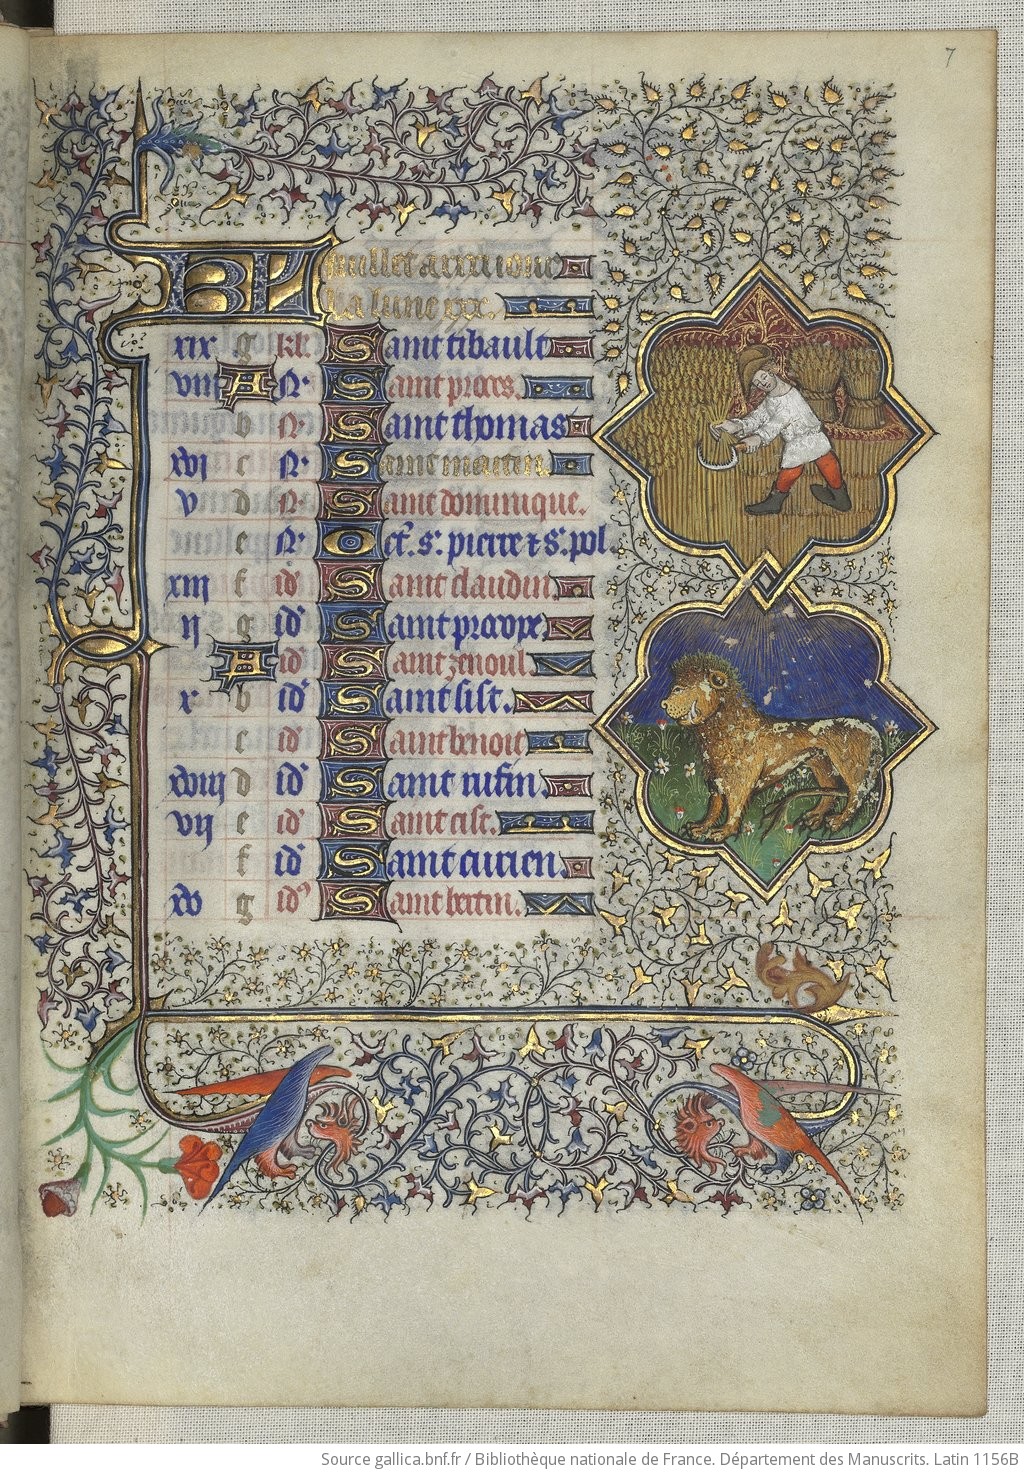 7
KL Juillet a xxxi iour
La lune xxx.
xix g kl. Saint tibault
viii A N. Saint proces.
b N. Saint thomas
xvi c N. Saint martin.
v d N. Saint dominique.
e N. Oct. s. pierre & s. pol.
xiii f id Saint claudin
ii g id Saint procope
A id Saint zenoul.
x b id Saint sist.
c id Saint benoit
xviii d id Saint rufin.
vii e id Saint cist.
f id Saint curien.
xv g id Saint bertin.
Source gallica.bnf.fr / Bibliothèque nationale de France. Département des Manuscrits. Latin 1156B